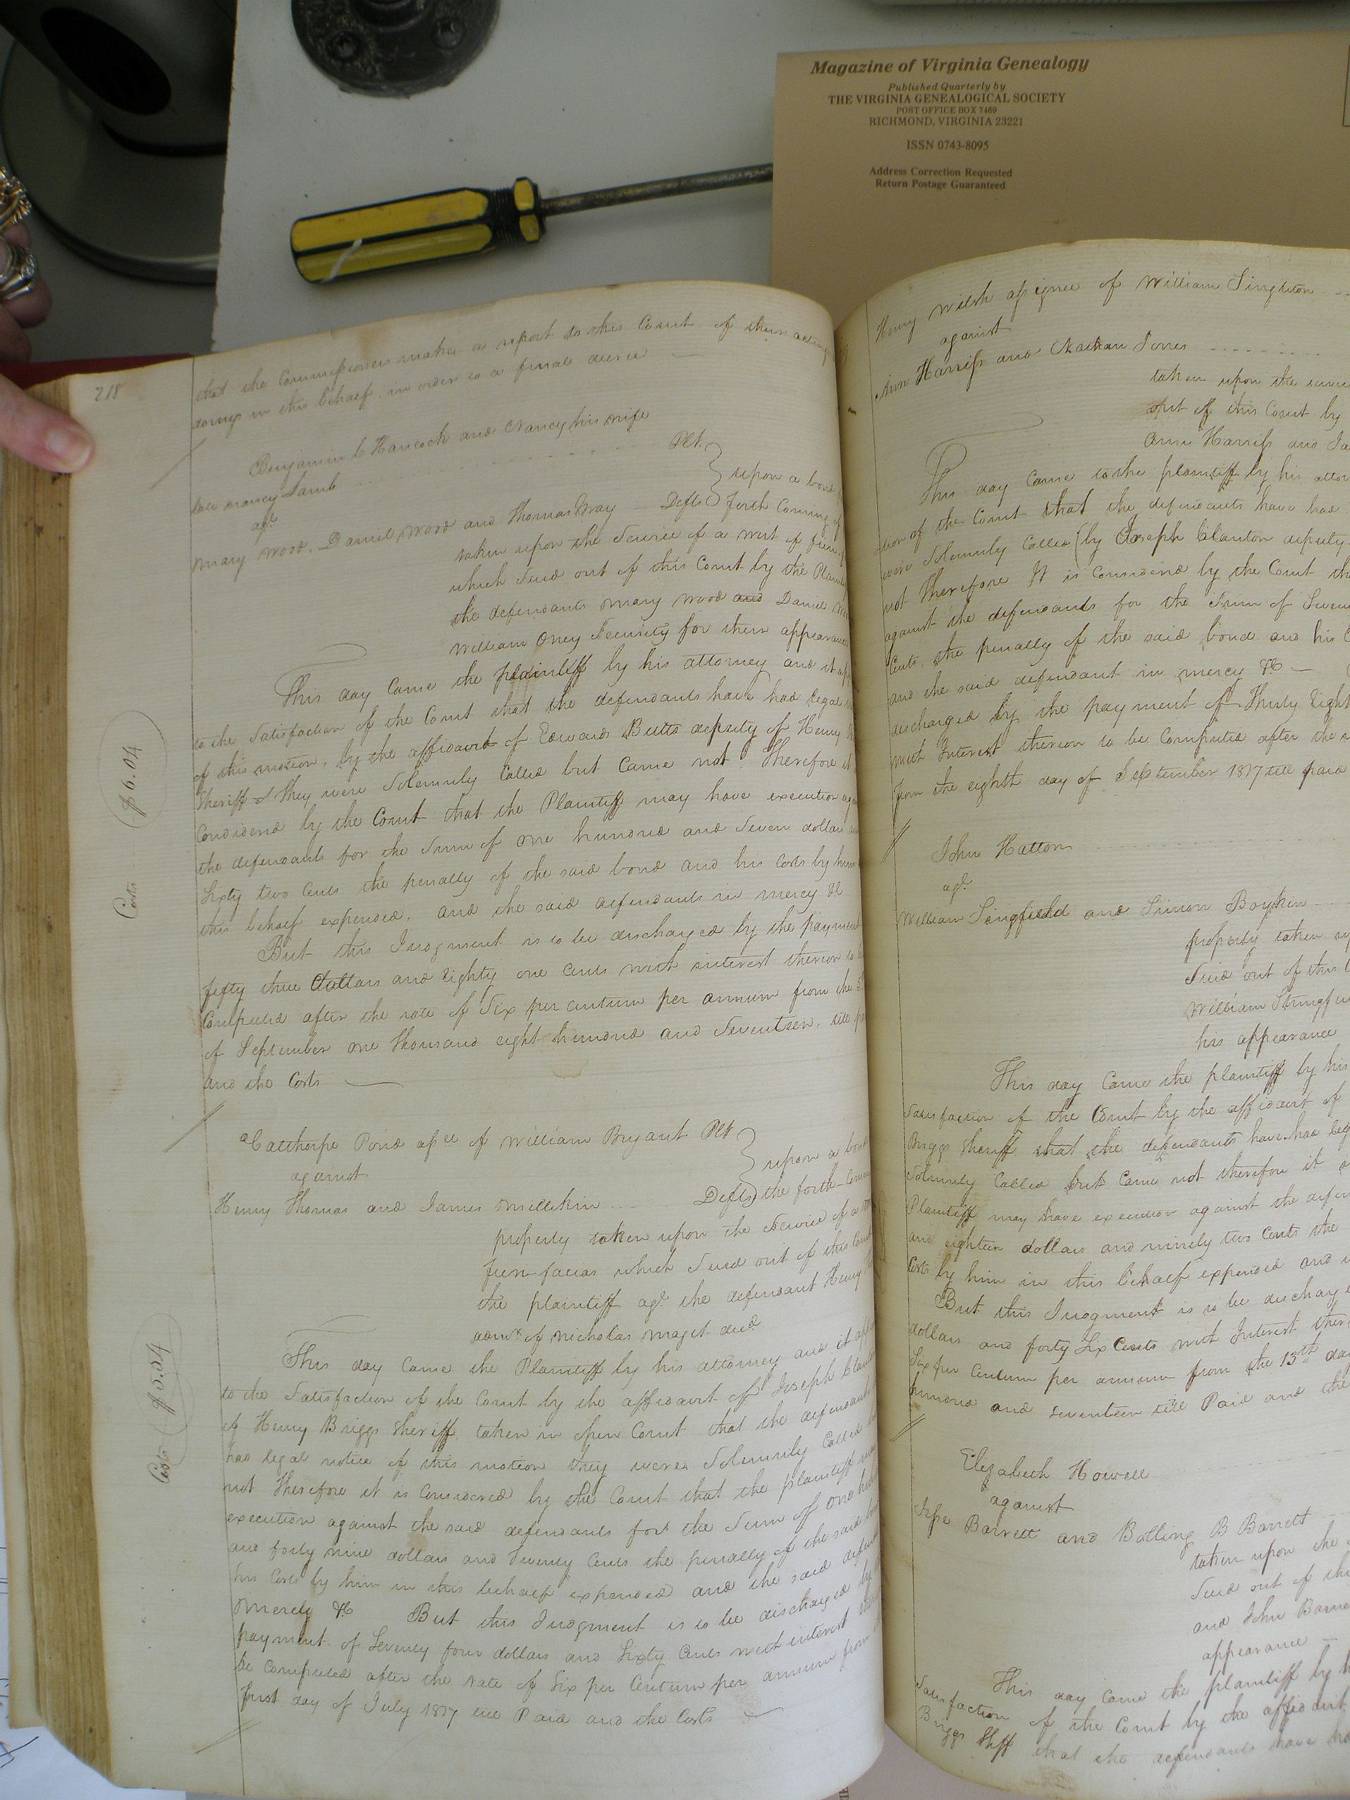 Magazine of Virginia Genealogy
Published Quarterly by
THE VIRGINIA GENEALOGICAL SOCIETY
POST OFFICE BOX 7469
RICHMOND, VIRGINIA 23221
ISSN 0743-8095
Address Correction Requested
Return Postage Guaranteed
218
that the Commissioners make a report to this Court of their acting
doings in this behalf in order to a final decree
Benjamin C Hancock and Nancy his wife
late nancy Lamb Plt
agt upon a bond
mary wood, Daniel Wood and Thomas Gray Defts forth Coming of
taken upon the Service of a writ of fieri
which Sued out of this Court by the Plain
the defendants mary wood and Daniel
William Oney Security for their appearance
This day Came the plaintiff by his attorney and it
to the Satisfaction of the Court that the defendants have had legal
of this motion, by the affidavit of Edward Butts deputy of Henry
Sheriff & they were Solemnly Called but Came not Therefore it
Considered by the Court that the Plaintiff may have execution
the defendants for the Sum of one hundred and Seven dollars
Sixty two Cents the penalty of the said bond and his Costs by him
this behalf expended. and the said defendants in mercy &c
But this Judgment is to be discharged by the payment
fifty three dollars and Eighty one Cents with interest thereon to
Computed after the rate of Six per centum per annum from the
of September one thousand eight hundred and Seventeen, till
and the Costs
Costs $6.04
Catherpe Pond assee of William Bryant Plt
against upon a bond
Henry Thomas and James Millikin Defts the forth Coming
property taken upon the Service of a
fieri facias which Sued out of this Court
the plaintiff agt the defendant Henry
admr of Nicholas Maget decd
This day Came the Plaintiff by his attorney and it
to the Satisfaction of the Court by the affidavit of Joseph
of Henry Briggs Sheriff, taken in open Court that the defendants
had legal notice of this motion they were Solemnly Called
not Therefore it is Considered by the Court that the plaintiff
execution against the said defendants for the Sum of one
and forty nine dollars and Twenty Cents the penalty of the said
his Costs by him in this behalf expended and the said
mercy &c But this Judgment is to be discharged by
payment of Seventy four dollars and Sixty Cents with interest
be Computed after the rate of Six per Centum per annum from
first day of July 1817 till Paid and the Costs
Costs $5.54
Henry Welsh assignee of William Singleton
against
Ann Harriss and Nathan Jones
taken upon the
out of this Court by
Ann Harriss and
This day Came the plaintiff by his
of the Court that the defendants have had
were Solemnly Called (by Joseph Clanton deputy
not Therefore It is Considered by the Court
against the defendants for the Sum of Seven
Cents, the penalty of the said bond and his
and the said defendant in mercy &c
discharged by the payment of Thirty Eight
with Interest thereon to be Computed after the
from the eighth day of September 1817 till paid
John Hatton
agt
William Stringfield and Simon Boykin
property taken
Sued out of this
William
his appearance
This day Came the plaintiff by his
Satisfaction of the Court by the affidavit of
Briggs Sheriff that the defendants have had
Solemnly Called but Came not therefore it
Plaintiff may have execution against the
and eighteen dollars and ninety two Cents the
Costs by him in this behalf expended and
But this Judgment is to be discharged
dollars and forty Six Cents with Interest
Six per Centum per annum from the 13th day
hundred and Seventeen till Paid and the
Elizabeth Howell
against
Jesse Barrett and Bolling B Barrett
taken upon the
Sued out of the
and John
appearance
This day Came the plaintiff by
Satisfaction of the Court by the affidavit
Briggs Shff that the defendants have